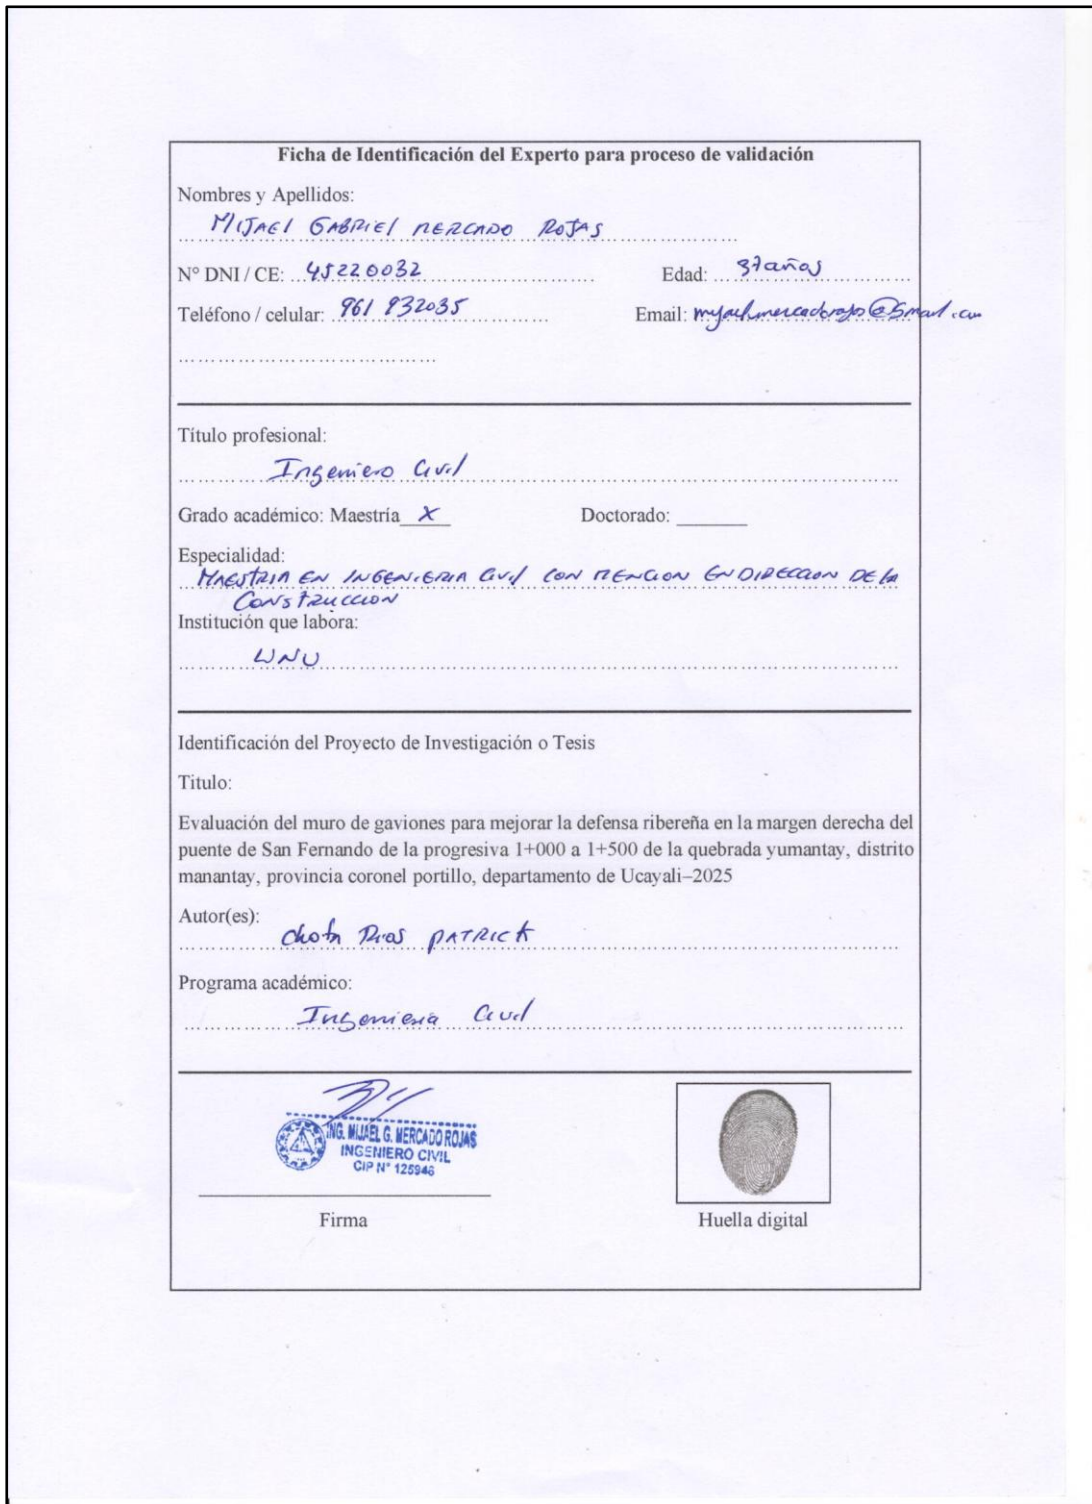 Ficha de Identificación del Experto para proceso de validación
Nombres y Apellidos:
MIJAEl GABRIEl MERCADO ROJAS
N° DNI / CE: 45220032 Edad: 37 años
Teléfono / celular: 961 932035 Email:
Título profesional:
Ingeniero Civil
Grado académico: Maestría X Doctorado:
Especialidad:
MAESTRIA EN INGENIERIA Civil CON MENCION EN DIRECCION DE la
CONSTRUCCION
Institución que labora:
UNU
Identificación del Proyecto de Investigación o Tesis
Titulo:
Evaluación del muro de gaviones para mejorar la defensa ribereña en la margen derecha del
puente de San Fernando de la progresiva 1+000 a 1+500 de la quebrada yumantay, distrito
manantay, provincia coronel portillo, departamento de Ucayali–2025
Autor(es):
Chota Rios PATRICK
Programa académico:
Ingenieria Civil
ING. MIJAEL G. MERCADO ROJAS
INGENIERO CIVIL
CIP N° 125946
Firma Huella digital